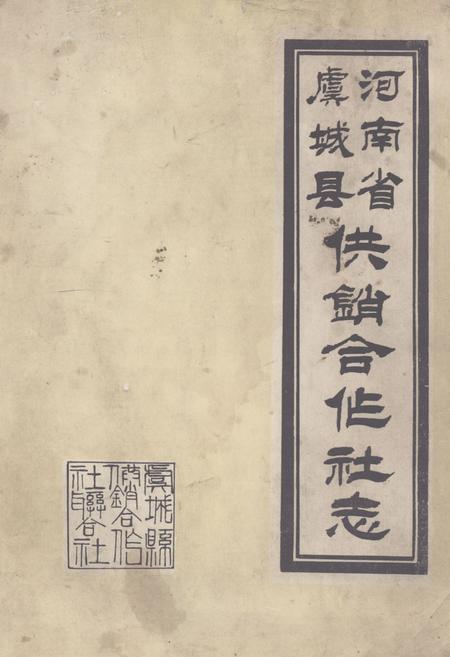 河南省
虞城县
供销合作社志
虞城縣
供銷合作
社聯合社